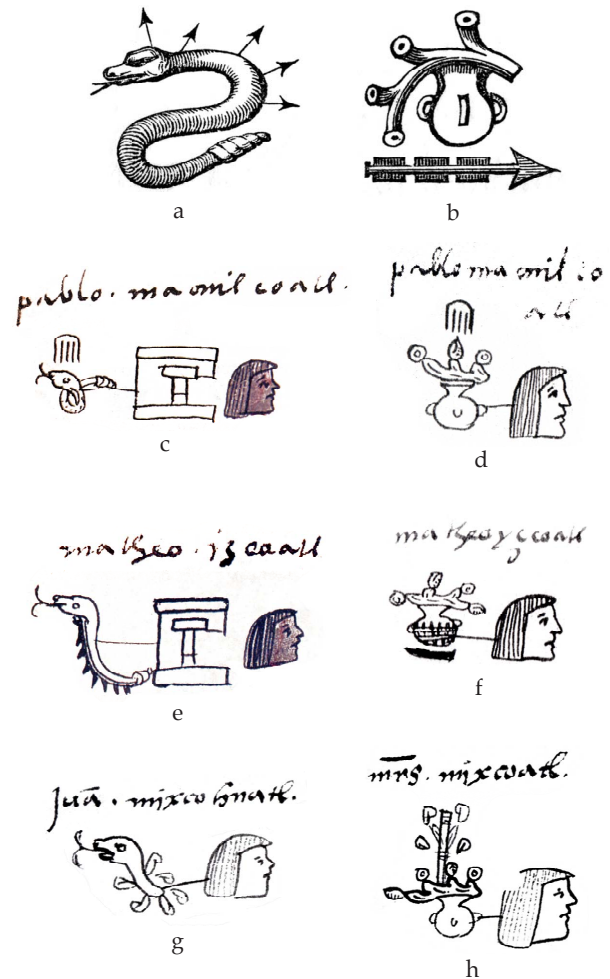 a
b
pablo. macuil coatl.
pablo macuil co
atl
c
d
matheo. izcoatl
matheo yzcoatl
e
f
juā. mixcohuatl.
mrs. mixcoatl.
g
h